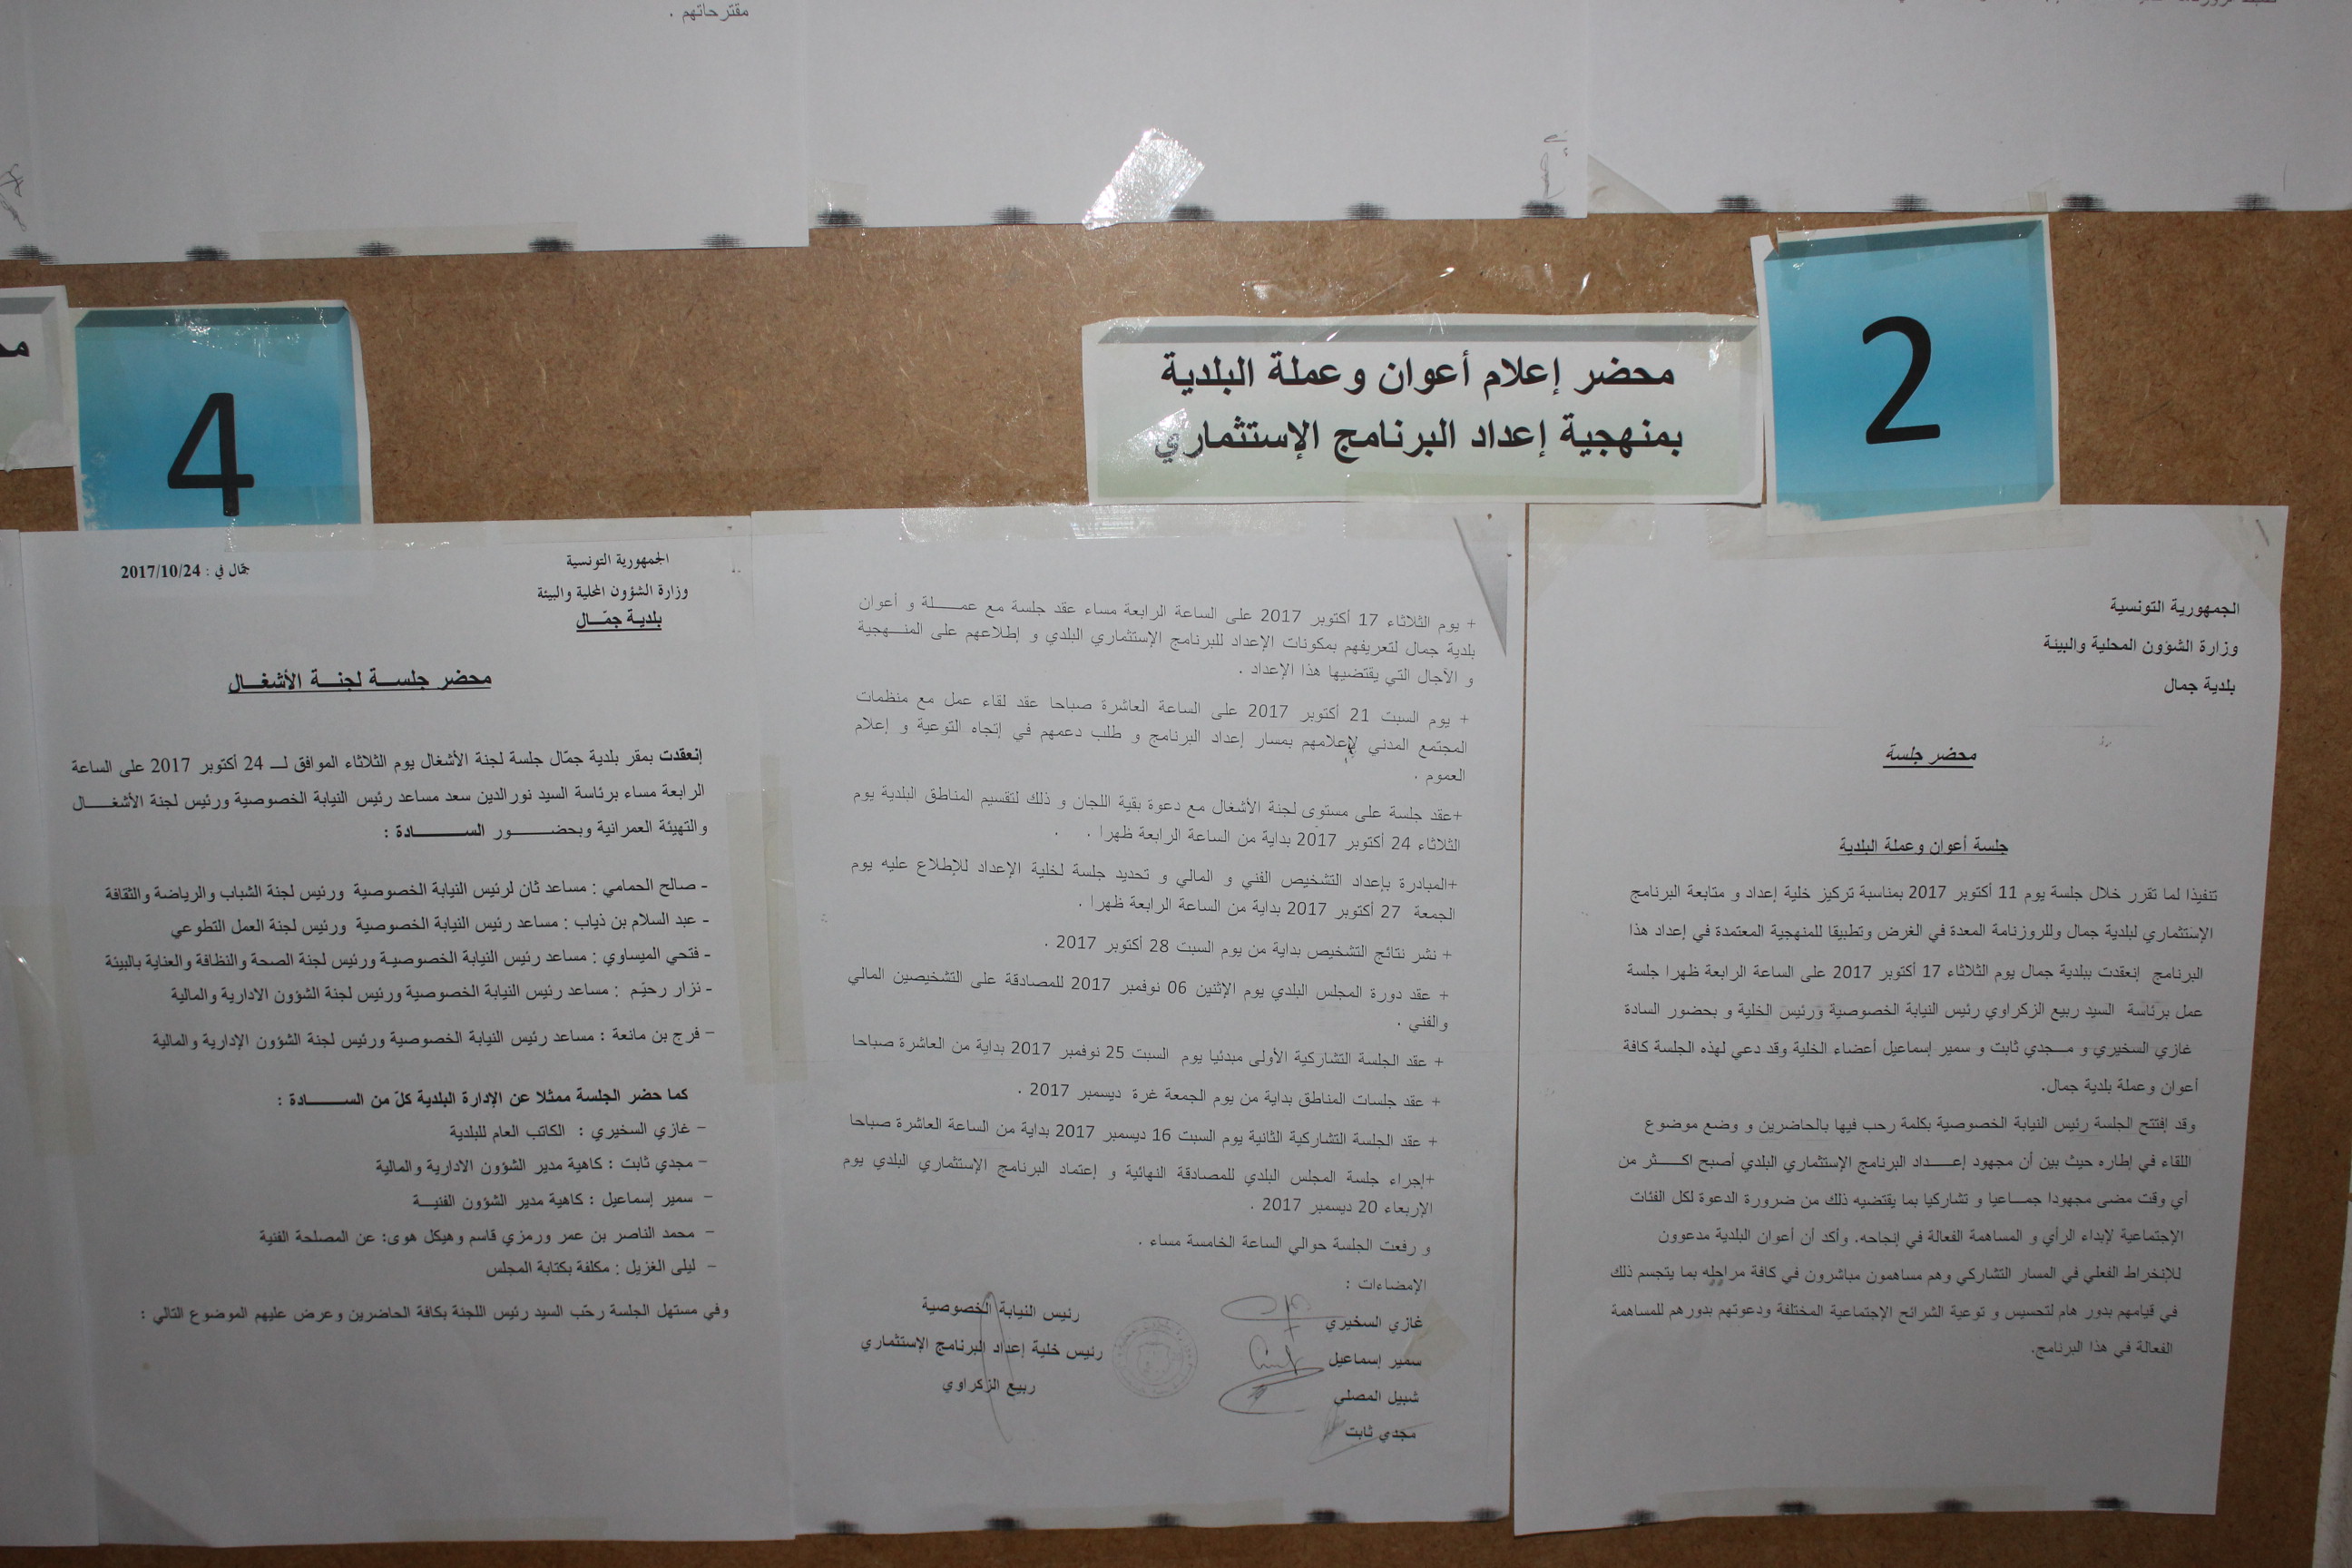 مقترحاتهم .
2
محضر إعلام أعوان وعملة البلدية
بمنهجية إعداد البرنامج الإستثماري
4
الجمهورية التونسية
وزارة الشؤون المحلية والبيئة
بلدية جمال
محضر جلسة
جلسة أعوان وعملة البلدية
تنفيذا لما تقرر خلال جلسة يوم 11 أكتوبر 2017 بمناسبة تركيز خلية إعداد و متابعة البرنامج
الإستثماري لبلدية جمال وللروزنامة المعدة في الغرض وتطبيقا للمنهجية المعتمدة في إعداد هذا
البرنامج إنعقدت ببلدية جمال يوم الثلاثاء 17 أكتوبر 2017 على الساعة الرابعة ظهرا جلسة
عمل برئاسة السيد ربيع الزكراوي رئيس النيابة الخصوصية ورئيس الخلية و بحضور السادة
غازي السخيري و مـــجدي ثابت و سمير إسماعيل أعضاء الخلية وقد دعي لهذه الجلسة كافة
أعوان وعملة بلدية جمال.
وقد إفتتح الجلسة رئيس النيابة الخصوصية بكلمة رحب فيها بالحاضرين و وضع موضوع
اللقاء في إطاره حيث بين أن مجهود إعـــــداد البرنامج الإستثماري البلدي أصبح اكـــــثر من
أي وقت مضى مجهودا جمـــاعيا و تشاركيا بما يقتضيه ذلك من ضرورة الدعوة لكل الفئات
الإجتماعية لإبداء الرأي و المساهمة الفعالة في إنجاحه. وأكد أن أعوان البلدية مدعوون
للإنخراط الفعلي في المسار التشاركي وهم مساهمون مباشرون في كافة مراحله بما يتجسم ذلك
في قيامهم بدور هام لتحسيس و توعية الشرائح الإجتماعية المختلفة ودعوتهم بدورهم للمساهمة
الفعالة في هذا البرنامج.
+ يوم الثلاثاء 17 أكتوبر 2017 على الساعة الرابعة مساء عقد جلسة مع عمـــــلة و أعوان
بلدية جمال لتعريفهم بمكونات الإعداد للبرنامج الإستثماري البلدي و إطلاعهم على المنـــهجية
و الآجال التي يقتضيها هذا الإعداد .
+ يوم السبت 21 أكتوبر 2017 على الساعة العاشرة صباحا عقد لقاء عمل مع منظمات
المجتمع المدني لإعلامهم بمسار إعداد البرنامج و طلب دعمهم في إتجاه التوعية و إعلام
العموم .
+عقد جلسة على مستوى لجنة الأشغال مع دعوة بقية اللجان و ذلك لتقسيم المناطق البلدية يوم
الثلاثاء 24 أكتوبر 2017 بداية من الساعة الرابعة ظهرا .
+المبادرة بإعداد التشخيص الفني و المالي و تحديد جلسة لخلية الإعداد للإطلاع عليه يوم
الجمعة 27 أكتوبر 2017 بداية من الساعة الرابعة ظهرا .
+ نشر نتائج التشخيص بداية من يوم السبت 28 أكتوبر 2017 .
+ عقد دورة المجلس البلدي يوم الإثنين 06 نوفمبر 2017 للمصادقة على التشخيصين المالي
والفني .
+ عقد الجلسة التشاركية الأولى مبدئيا يوم السبت 25 نوفمبر 2017 بداية من العاشرة صباحا
+ عقد جلسات المناطق بداية من يوم الجمعة غرة ديسمبر 2017 .
+ عقد الجلسة التشاركية الثانية يوم السبت 16 ديسمبر 2017 بداية من الساعة العاشرة صباحا
+إجراء جلسة المجلس البلدي للمصادقة النهائية و إعتماد البرنامج الإستثماري البلدي يوم
الإربعاء 20 ديسمبر 2017 .
و رفعت الجلسة حوالي الساعة الخامسة مساء .
الإمضاءات :
غازي السخيري
سمير إسماعيل
شبيل المصلي
مجدي ثابت
رئيس النيابة الخصوصية
رئيس خلية إعداد البرنامج الإستثماري
ربيع الزكراوي
الجمهورية التونسية
وزارة الشؤون المحلية والبيئة
بلديـة جمّـــال
جمّال في : 2017/10/24
محضر جلســـة لجنـــة الأشغـــال
إنعقدت بمقر بلدية جمّال جلسة لجنة الأشغال يوم الثلاثاء الموافق لـــ 24 أكتوبر 2017 على الساعة
الرابعة مساء برئاسة السيد نورالدين سعد مساعد رئيس النيابة الخصوصية ورئيس لجنة الأشغـــــال
والتهيئة العمرانية وبحضـــــــور الســـــــــــادة :
- صالح الحمامي : مساعد ثان لرئيس النيابة الخصوصية ورئيس لجنة الشباب والرياضة والثقافة
- عبد السلام بن ذياب : مساعد رئيس النيابة الخصوصية ورئيس لجنة العمل التطوعي
- فتحي الميساوي : مساعد رئيس النيابة الخصوصيـة ورئيس لجنة الصحة والنظافة والعناية بالبيئة
- نزار رحيّم : مساعد رئيس النيابة الخصوصية ورئيس لجنة الشؤون الادارية والمالية
- فرج بن مانعة : مساعد رئيس النيابة الخصوصية ورئيس لجنة الشؤون الإدارية والمالية
كما حضر الجلسة ممثلا عن الإدارة البلدية كلّ من الســـــــــادة :
- غازي السخيري : الكاتب العام للبلدية
- مجدي ثابت : كاهية مدير الشؤون الادارية والمالية
- سمير إسماعيل : كاهية مدير الشؤون الفنيـــة
- محمد الناصر بن عمر ورمزي قاسم وهيكل هوى: عن المصلحة الفنية
- ليلى الغزيل : مكلفة بكتابة المجلس
وفي مستهل الجلسة رحّب السيد رئيس اللجنة بكافة الحاضرين وعرض عليهم الموضوع التالي :